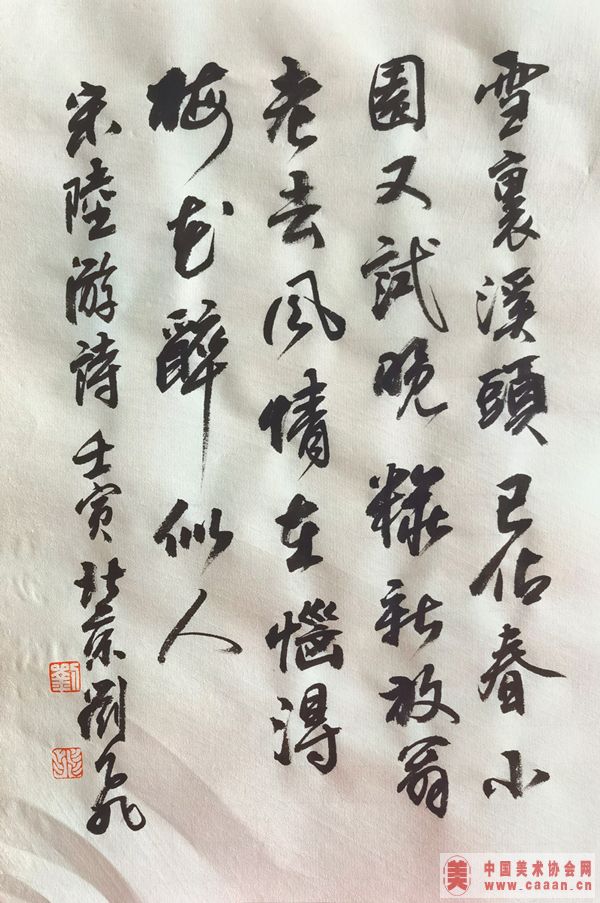 雪裏溪頭已佔春小
園又試晚糚新放翁
老去風情在惱得
梅花醉似人
宋陸游詩壬寅北京劉飛
劉
美
中国美术协会网
www.caaan.cn